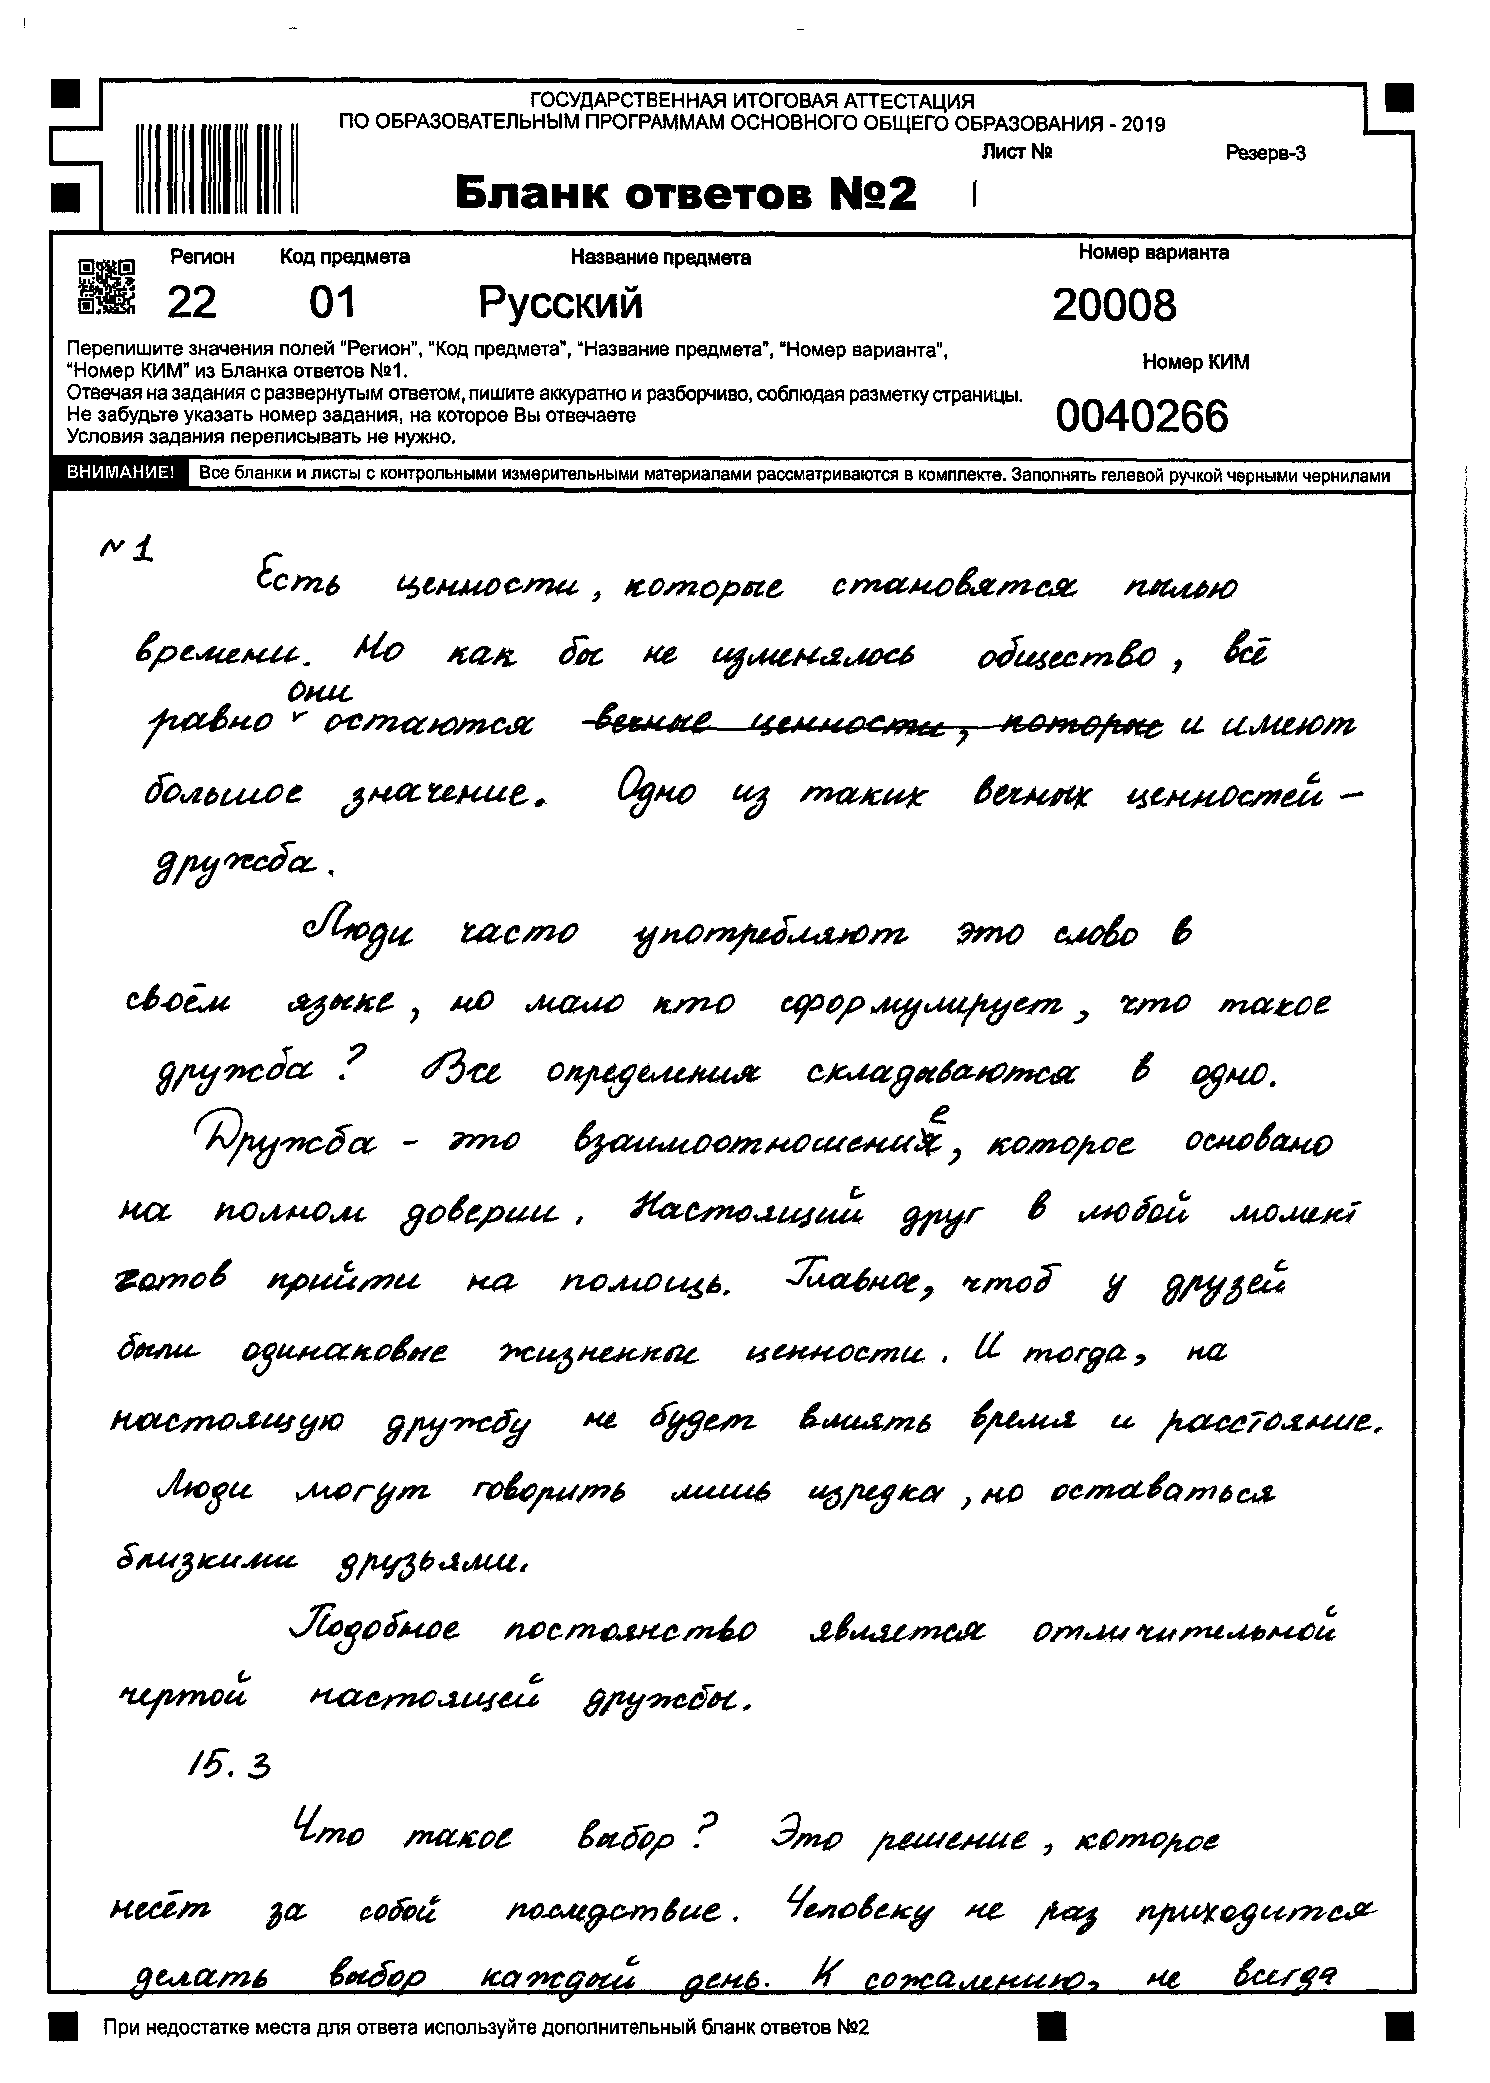 ГОСУДАРСТВЕННАЯ ИТОГОВАЯ АТТЕСТАЦИЯ
ПО ОБРАЗОВАТЕЛЬНЫМ ПРОГРАММАМ ОСНОВНОГО ОБЩЕГО ОБРАЗОВАНИЯ - 2019
Лист № Резерв-3
Бланк ответов №2 |
Регион Код предмета Название предмета Номер варианта
22 01 Русский 20008
Перепишите значения полей "Регион", "Код предмета", "Название предмета", "Номер варианта",
"Номер КИМ" из Бланка ответов №1.
Номер КИМ
Отвечая на задания с развернутым ответом, пишите аккуратно и разборчиво, соблюдая разметку страницы.
Не забудьте указать номер задания, на которое Вы отвечаете
0040266
Условия задания переписывать не нужно.
ВНИМАНИЕ! Все бланки и листы с контрольными измерительными материалами рассматриваются в комплекте. Заполнять гелевой ручкой черными чернилами
~1
Есть ценности, которые становятся пылью
времени. Но как бы не изменялось общество, всё
равно они остаются вечные ценности, которые и имеют
большое значение. Одно из таких вечных ценностей –
дружба.
Люди часто употребляют это слово в
своём языке, но мало кто сформулирует, что такое
дружба? Все определения складываются в одно.
Дружба - это взаимоотношение, которое основано
на полном доверии. Настоящий друг в любой момент
готов прийти на помощь. Главное, чтоб у друзей
были одинаковые жизненные ценности. И тогда, на
настоящую дружбу не будет влиять время и расстояние.
Люди могут говорить лишь изредка, но оставаться
близкими друзьями.
Подобное постоянство является отличительной
чертой настоящей дружбы.
15.3
Что такое выбор? Это решение, которое
несёт за собой последствие. Человеку не раз приходится
делать выбор каждый день. К сожалению, не всегда
При недостатке места для ответа используйте дополнительный бланк ответов №2